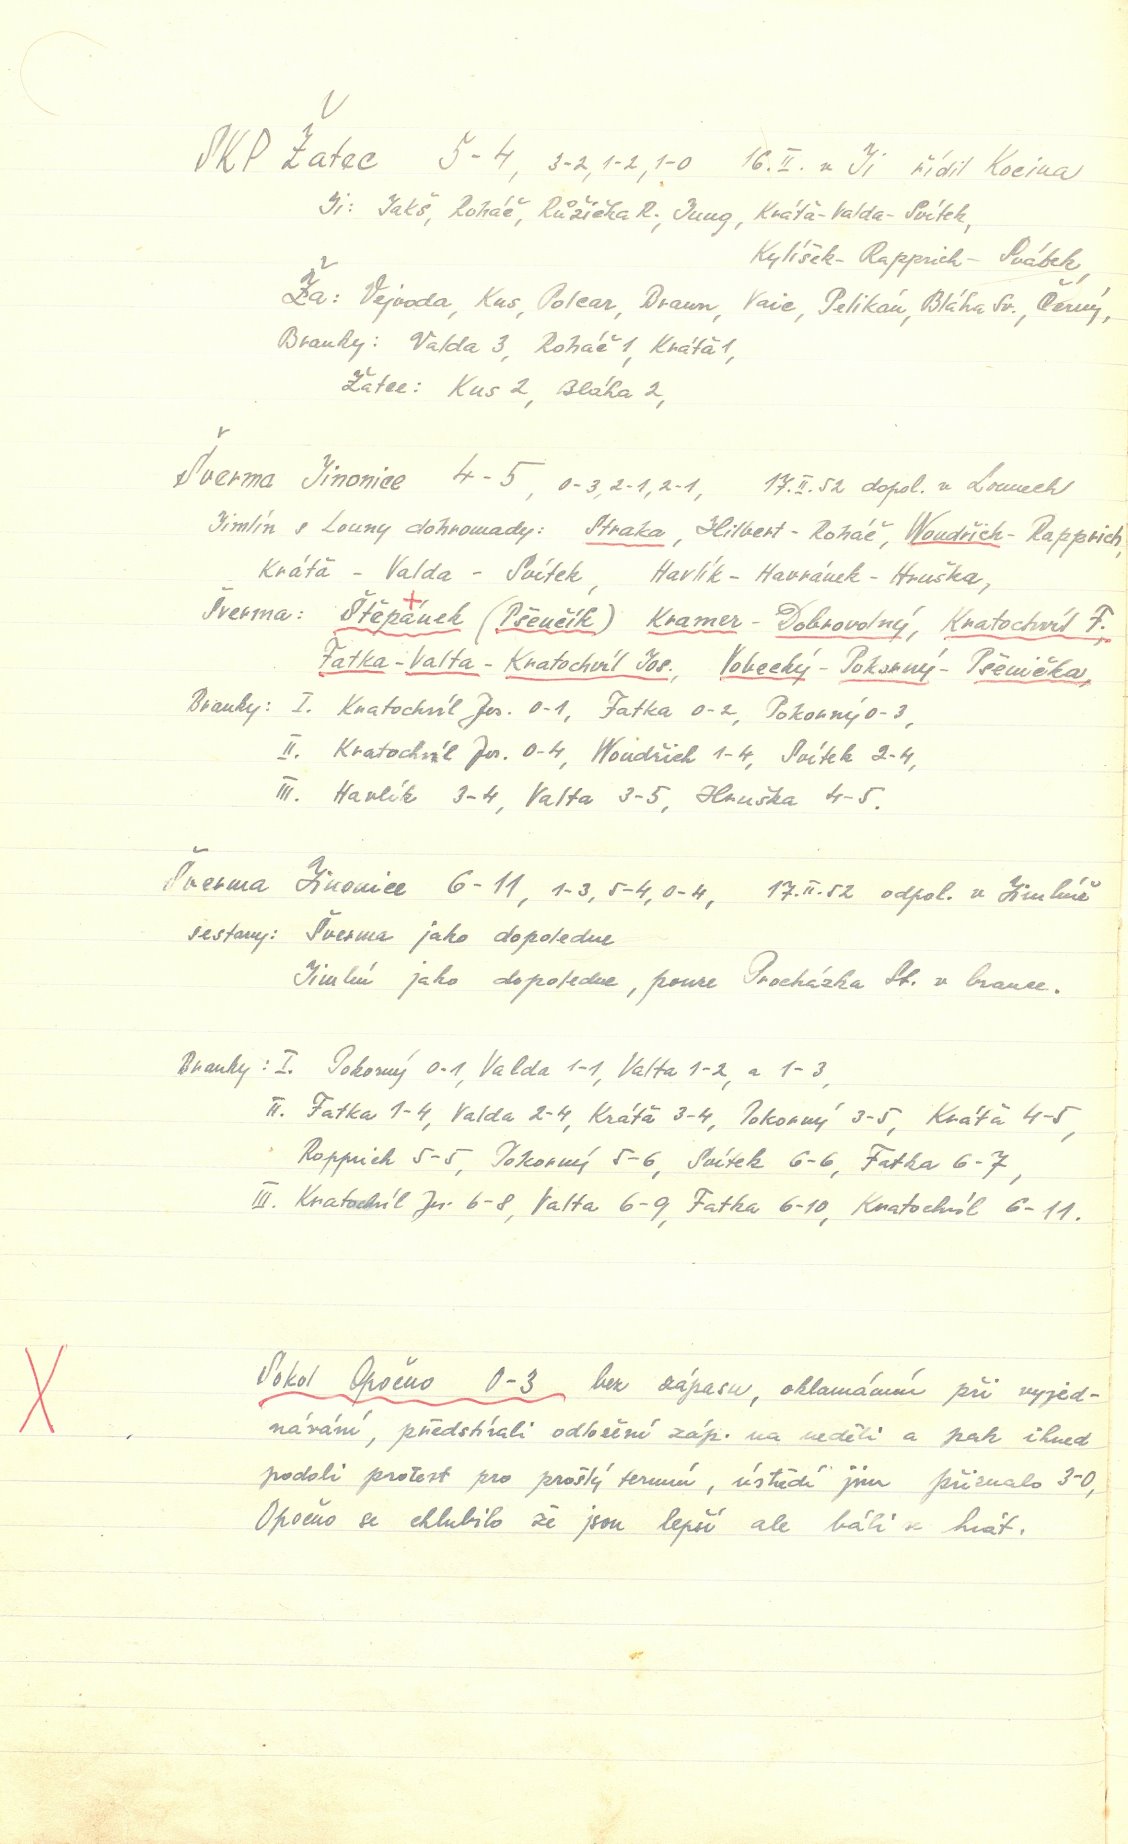 SKP Žatec 5-4, 3-2, 1-2, 1-0 16.II. v Ji řídil Kocina
Ji: Jakš, Roháč, Růžička R., Jung, Krátá-Valda-Svítek,
Kylíšek-Rapprich-Svábek,
Ža: Vejvoda, Kus, Polcar, Braun, Vaic, Pelikán, Bláha Sv., Černý,
Branky: Valda 3, Roháč 1, Krátá 1,
Žatec: Kus 2, Bláha 2,
Šverma Jinonice 4-5, 0-3, 2-1, 2-1, 17.II.52 dopol. v Lounech
Jimlín s Louny dohromady: Straka, Hilbert-Roháč, Woudřich-Rapprich,
Krátá - Valda - Svítek, Havlík-Havránek-Hruška,
Šverma: Štěpánek (Pšenčík) Kramer-Dobrovolný, Kratochvíl F.
Fatka-Valta-Kratochvíl Jos., Vobecký-Pokorný-Pšenička,
Branky: I. Kratochvíl Jos. 0-1, Fatka 0-2, Pokorný 0-3,
II. Kratochvíl Jos. 0-4, Woudřich 1-4, Svítek 2-4,
III. Havlík 3-4, Valta 3-5, Hruška 4-5.
Šverma Jinonice 6-11, 1-3, 5-4, 0-4, 17.II.52 odpol. v Jimlíně
sestavy: Šverma jako dopoledne
Jimlín jako dopoledne, pouze Procházka St. v brance.
Branky: I. Pokorný 0-1, Valda 1-1, Valta 1-2, a 1-3,
II. Fatka 1-4, Valda 2-4, Krátá 3-4, Pokorný 3-5, Krátá 4-5,
Rapprich 5-5, Pokorný 5-6, Svítek 6-6, Fatka 6-7,
III. Kratochvíl Jos. 6-8, Valta 6-9, Fatka 6-10, Kratochvíl 6-11.
Sokol Opočno 0-3 bez zápasu, oklamáním při vyjed-
návání, předstírali odložení záp. na neděli a pak ihned
podali protest pro prošlý termín, ústředí jim přiznalo 3-0,
Opočno se chlubilo že jsou lepší ale báli se hrát.